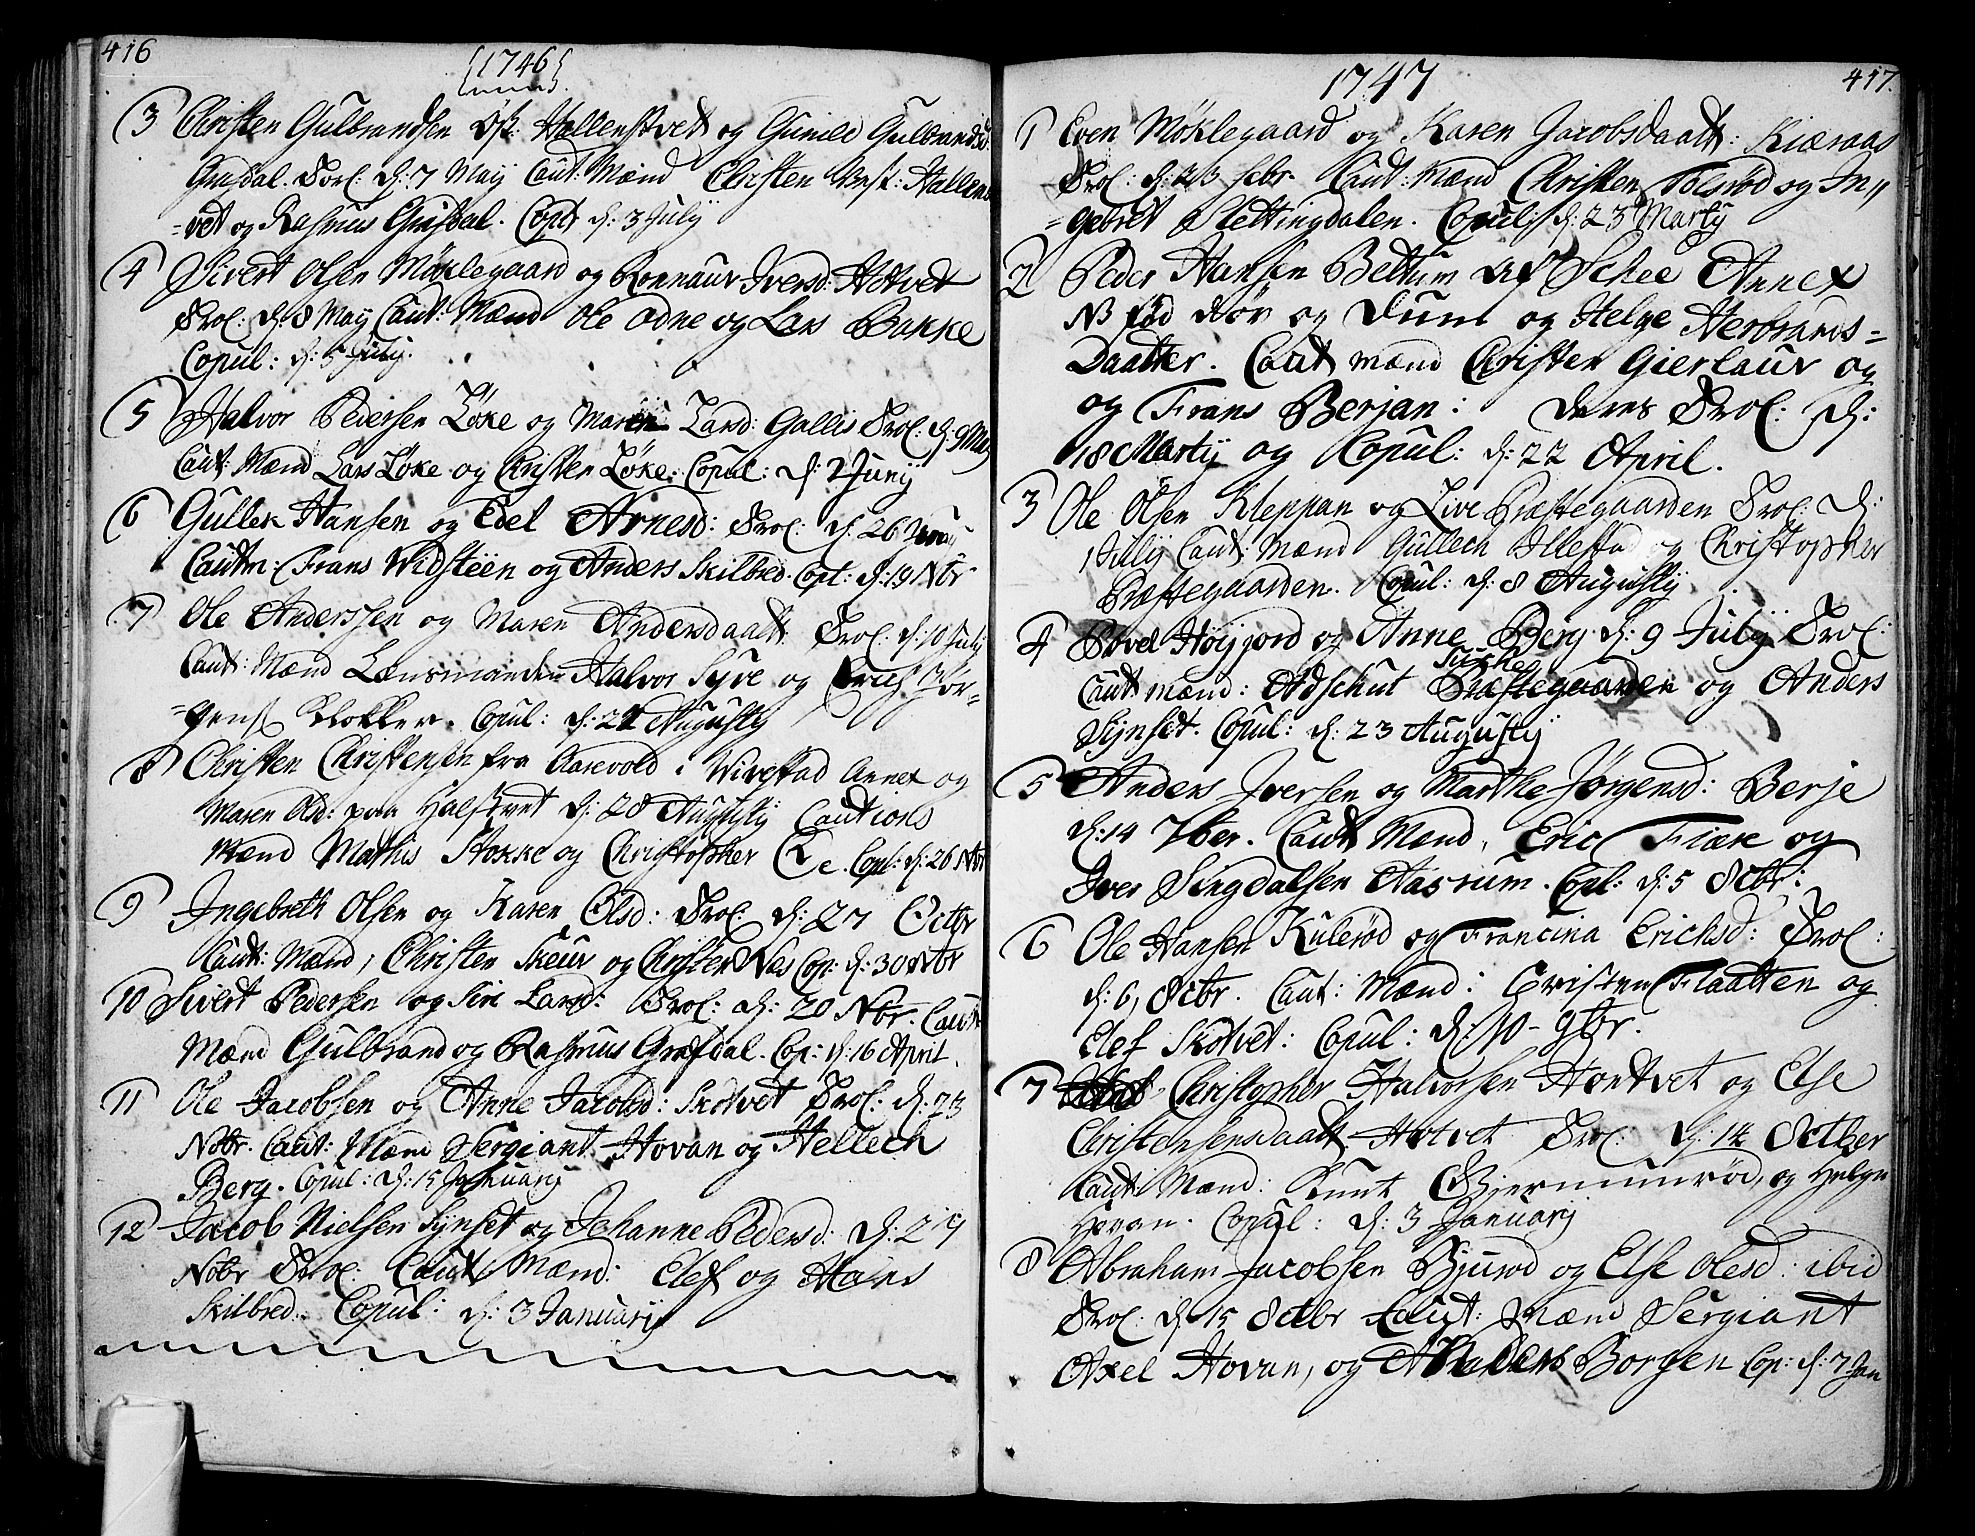 416
1746
3 Christen Gulbrandsen Øst: Hallenstvet og Gunild Gulbrandsd:
Græsdal. Trol: d: 7 May Caut: Mænd Christen Vest: Hallenst
=vet og Rasmus Græsdal. Copl: d: 3 July
4 Sivert Olsen Møklegaard og Ronnaug Iversd: Hotvet
Trol: d: 8 May Caut: Mænd Ole Odne og Lars Bakke
Copul: d: 5 July.
5 Halvor Pedersen Løke og Maren Larsd: Gallis Trol: d: 9 May
Caut: Mænd Lars Løke og Christen Løke: Copul: d: 2 Junij
6 Gullek Hansen og Edel Arnesd: Trol: d: 26
Cautm: Frans Widsteen og Anders Skilbred. Copt: d: 19 Nbr
7 Ole Anderssen og Maren Andersdaatt: Trol: d: 10 July
Caut: Mænd Lensmanden Halvor Syre og Erich Jør-
=gens Klokker. Copul: d: 21 Augusty
8 Christen Christensen fra Aarevold i Wivestad Annex og
Maren Olsd: paa Halstvet d: 28 Augusty Cautions
Mænd Mathis Stokke og Christopher Ee. Copl: d: 26 Nbr
9 Ingebreth Olsen og Karen Olsd: Trol: d: 27 Octbr
Caut: Mænd, Christen Skeur og Christen Nes Cop: d: 30 Nbr
10 Sivert Pedersen og Siri Larsd: Trol: d: 20 Nbr. Caut:
Mænd Gulbrand og Rasmus Græsdal. Cop: d: 16 April.
11 Ole Jacobsen og Anne Jacobsd: Skotvet Trol: d: 23
Nobr. Caut: Mænd Sergiant Hovan og Hellech
Berg. Copul: d: 15 Januarij
12 Jacob Nielsen Synset og Johanne Pedersd: d: 29
Nobr Trol: Caut Mænd: Elef og Hans
Skilbred. Copul: d: 3 Januarij
417.
1747
1 Even Møklegaard og Karen Jacobsdaatt: Kiæraas
Trol: d: 23 febr. Caut: Mænd Christen Tolsrød og In=
=gebret Slettingdalen. Copul: d: 23 Martij
2 Peder Hansen Beltum af Schee Annex
NB fød døv og Dum og Helge Herbrands=
Daatter. Caut mænd Christen Gierlaur og
og Frans Berjan: deres Trol: d:
18 Martij og Copul: d: 22 April.
3 Ole Olsen Kleppan og Live Præstegaarden Trol: d:
1 July Caut: Mænd Gullech Illestad og Christopher
Præstegaarden. Copul: d: 8 Augustij
4 Povel Høijjord og Anne Berg d: 9 Julij Trol:
Tuske
Caut mænd: Adschut Præstegaarden og Anders
Synset. Copul: d: 23 Augustij
5 Anders Iversen og Marthe Jørgensd: Berje
d: 14 7ber. Caut Mænd, Eric Fiære og
Iver Singdalsen Aasrum. Copl: d: 5 Octbr:
6 Ole Hansen Kulerød og Francina Erichsd: Trol:
d: 6, Octbr. Caut: Mænd: Christen Flaatten og
Elef Skotvet: Copul: d: 10 - 9br.
7 Christopher Halvorsen Hontvet og Else
Christensensdaatt Hotvet Trol: d: 14 October
Caut Mænd: Knut Gjermunrød, og Helge
Hovan. Copul: d: 3 Januarij
8 Abraham Jacobsen Bjurød og Else Olesd: ibid
Trol: d: 15 Octbr Caut: Mænd Sergiant
Axel Hovan, og Anders Borgen Cop: d: 7 Jan